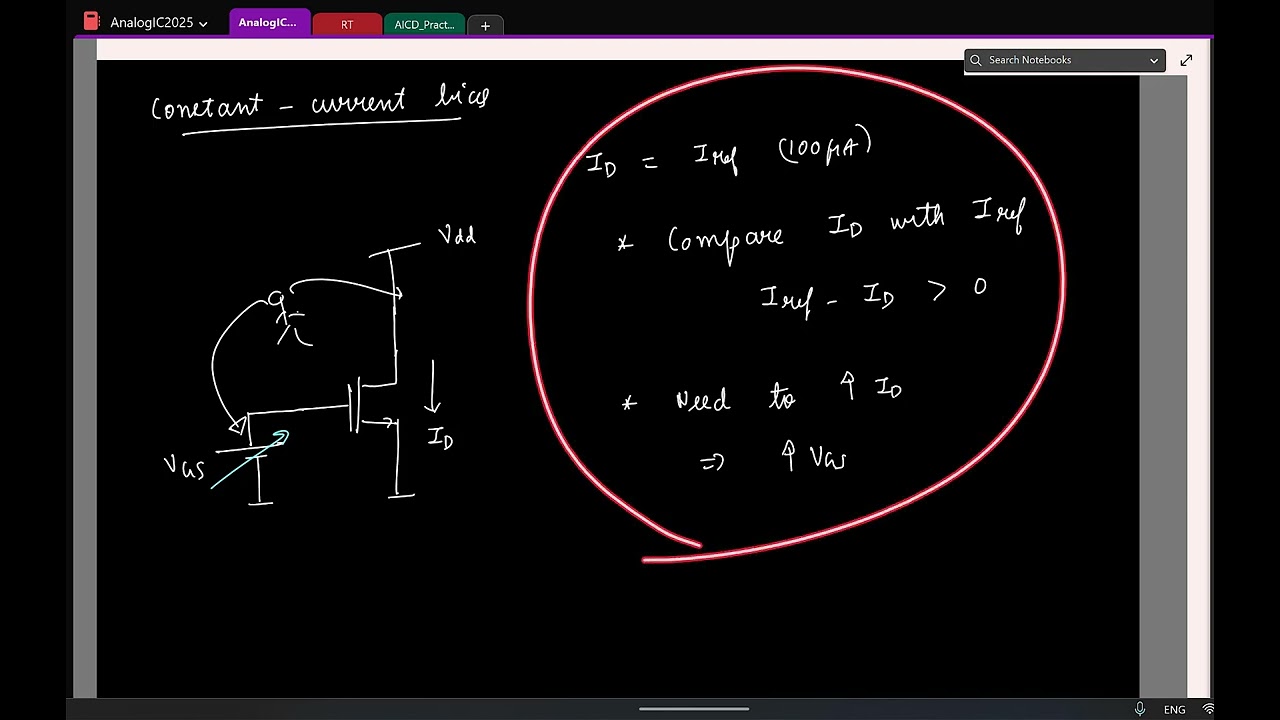 AnalogIC2025
AnalogIC...
RT
AICD_Pract...
+
Search Notebooks
Constant - current bias
I_D = Iref (100µA)
* Compare I_D with Iref
Iref - I_D > 0
Vdd
* Need to ↑ I_D
I_D
⇒ ↑ VGS
VGS
ENG